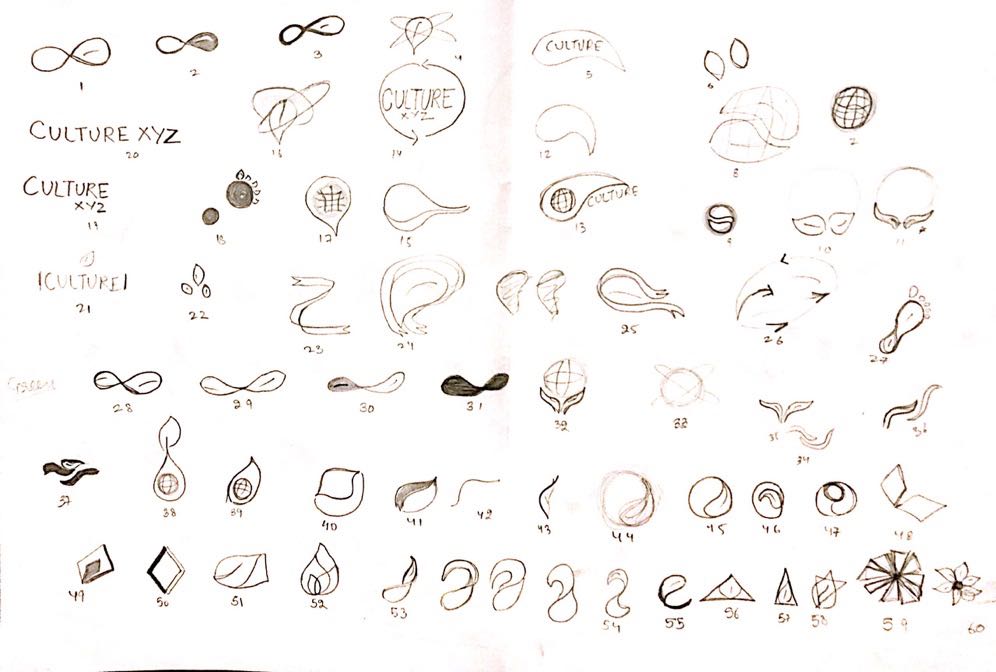 1
2
3
4
CULTURE
5
6
CULTURE XYZ
20
16
CULTURE
XYZ
14
12
8
CULTURE
XYZ
19
18
17
15
CULTURE
13
9
10
11
|CULTURE|
21
22
23
24
25
26
27
Green
28
29
30
31
32
33
35
34
36
37
38
39
40
41
42
43
44
45
46
47
48
49
50
51
52
53
54
55
56
57
58
59
60